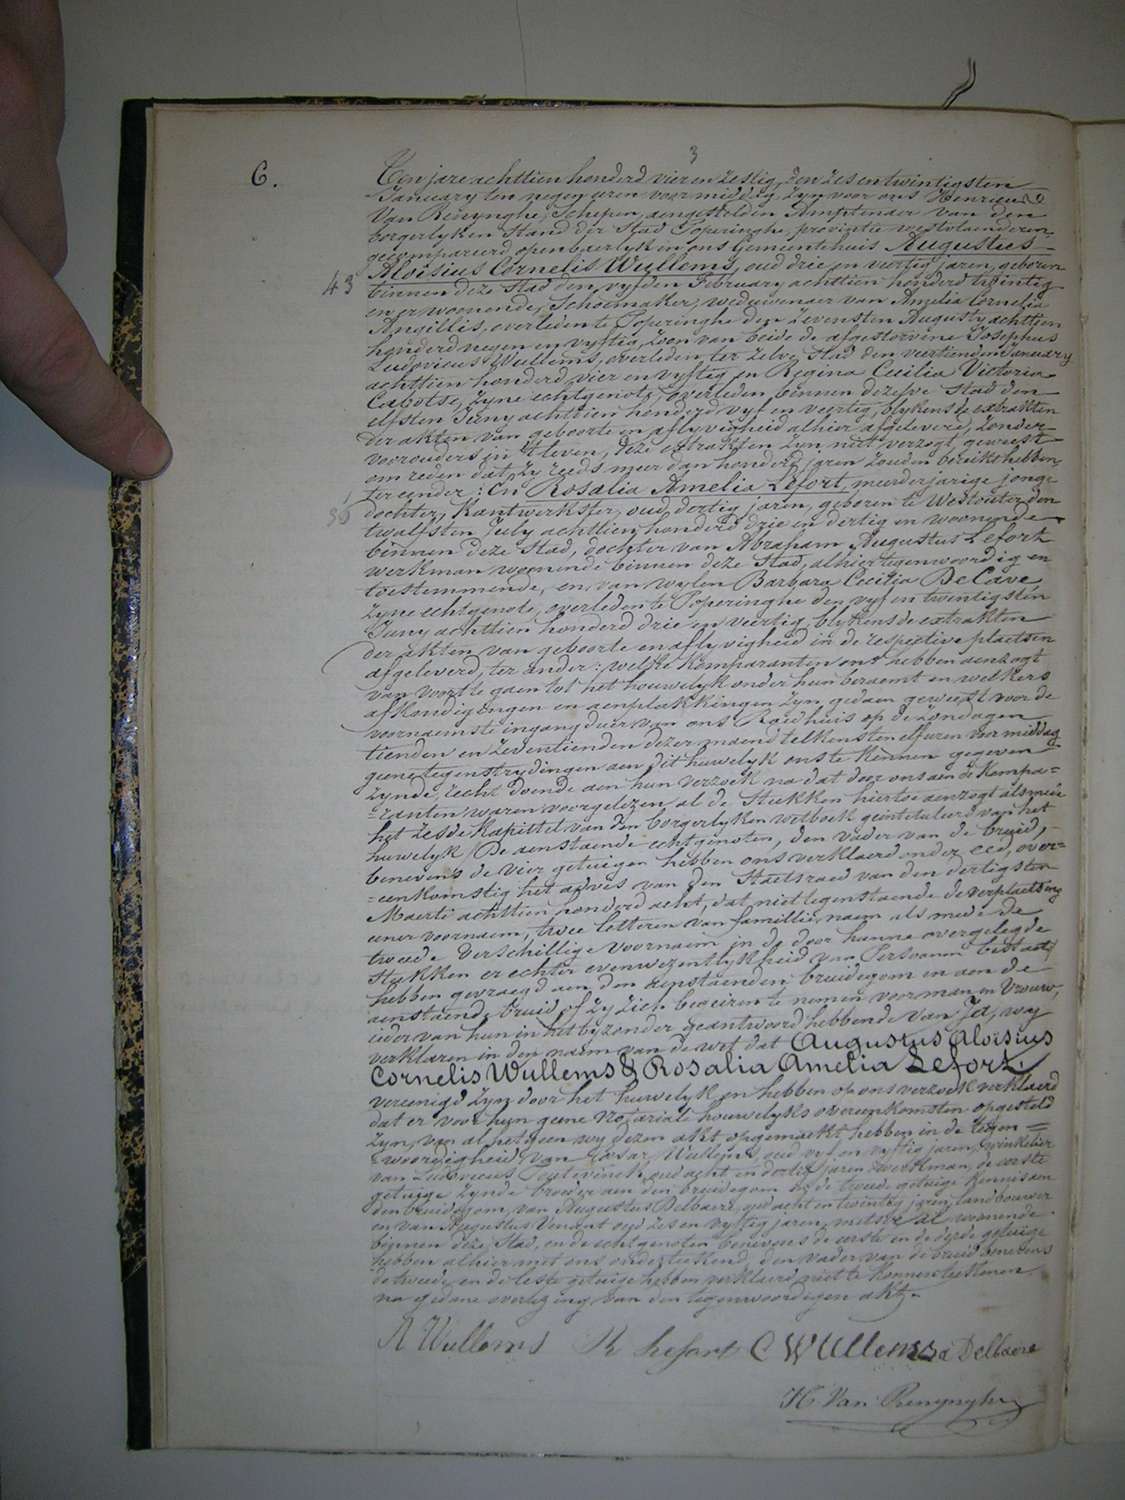 3
6.
Ten jare achttien honderd vier en zestig, den zes en twintigsten
January ten negen uren voormiddag, zyn voor ons Henricus
Van Renynghe, Schepen, aengestelden Amptenaer van den
borgerlyken Stand der Stad Poperinghe, provintie westvlaenderen
gecompareerd openbaerlyk in ons Gemeentehuis Augustus
43
Aloïsius Cornelis Wullems, oud drie en veertig jaren, geboren
binnen deze Stad den vyfden February achttien honderd twintig
en er woonende, Schoenmaker, weduwenaer van Amelia Cornelia
Angillis, overleden te Poperinghe den zevensten Augusty achttien
honderd negen en vyftig, zoon van beide de afgestorvene Josephus
Ludovicus Wullems, overleden ter zelve Stad den veertienden January
achttien honderd vier en vyftig en Regina Cecilia Victoria
Cabotse, zyne echtgenote, overleden binnen dezelve Stad den
elfsten Juny achttien honderd vyf en veertig, blykens de extrakten
der akten van geboorte en aflyvigheid alhier afgeleverd, zonder
voorouders in 't leven, deze extrakten zyn niet verzogt geweest
om reden dat zy reeds meer dan honderd jaren zouden bereikt hebben,
ter eender; En Rosalia Amelia Lefort, meerderjarige jonge
30
dochter, Kantwerkster, oud dertig jaren, geboren te Westouter den
twalfsten July achttien honderd drie en dertig en woonende
binnen deze Stad, dochter van Abraham Augustus Lefort
werkman woonende binnen deze Stad, alhier tegenwoordig en
toestemmende, en van wylen Barbara Cecilia DeCave,
zyne echtgenote, overleden te Poperinghe den vyf en twintigsten
Juny achttien honderd drie en veertig, blykens de extrakten
der akten van geboorte en aflyvigheid in de respective plaetsen
afgeleverd, ter ander: welke Komparanten ons hebben aenzogt
van voort te gaen tot het houwelyk onder hun beraemt en welkers
afkondigingen en aenplakkingen zyn gedaen geweest voor de
voornaemste ingangdeur van ons Raedhuis op de zondagen
tienden en zeventienden dezer maend telkensten elf uren voor middag
geene tegenstrydingen aen dit huwelyk ons te kennen gegeven
zynde, recht doende aen hun verzoek na dat door ons aen de Kompa=
=ranten waren voorgelezen al de Stukken hiertoe aenzogt alsmede
het zesde Kapittel van den borgerlyken wetboek geïntituleerd van het
huwelyk. De aenstaende echtgenoten, den vader van de bruid,
benevens de vier getuigen hebben ons verklaerd onder eed, over=
=eenkomstig het advies van den Staetsraed van den dertigsten
Maerti achttien honderd acht, dat niet tegenstaende de verplaetsing
eener voornaem, twee letteren van famillie naem als mede de
tweede verschillige voornaem in de door hunne overgelegde
Stukken er echter evenwezentlykheid van Persoonen bestaet
hebben gevraegd aen den aenstaenden bruidegom en aen de
aenstaende bruid of zy zich begeiren te nemen voor man en Vrouw,
ieder van hun in het byzonder geantwoord hebbende van Ja, wy
verklaren in den naem van de wet dat Augustus Aloïsius
Cornelis Wullems & Rosalia Amelia Lefort
vereenigd zyn door het huwelyk en hebben op ons verzoek verklaerd
dat er voor hun geene Notariale houwelyks overeenkomsten opgesteld
zyn, van al hetgeen wy dezen akt opgemaekt hebben in de tegen=
=woordigheid van Cesar Wullems oud vyf en vyftig jaren, winkelier
van Ludovicus oud acht en dertig jaren werkman, de eerste
getuige zynde broeder aen den bruidegom en de tweede getuige Kennis aen
den bruidegom, van Augustus Delbaere oud acht en twintig jaren, landbouwer
en van Augustus Venant oud zes en vyftig jaren, metser al woonende
binnen deze Stad, en de echtgenoten benevens de eerste en de derde getuige
hebben alhier met ons onderteekend, den vader van de bruid benevens
de tweede en de leste getuige hebben verklaerd niet te konnen teekenen
na gedane overlezing van den tegenwoordigen akt.
A Wullems R Lefort C Wullems a Delbaere
H. Van Renynghe